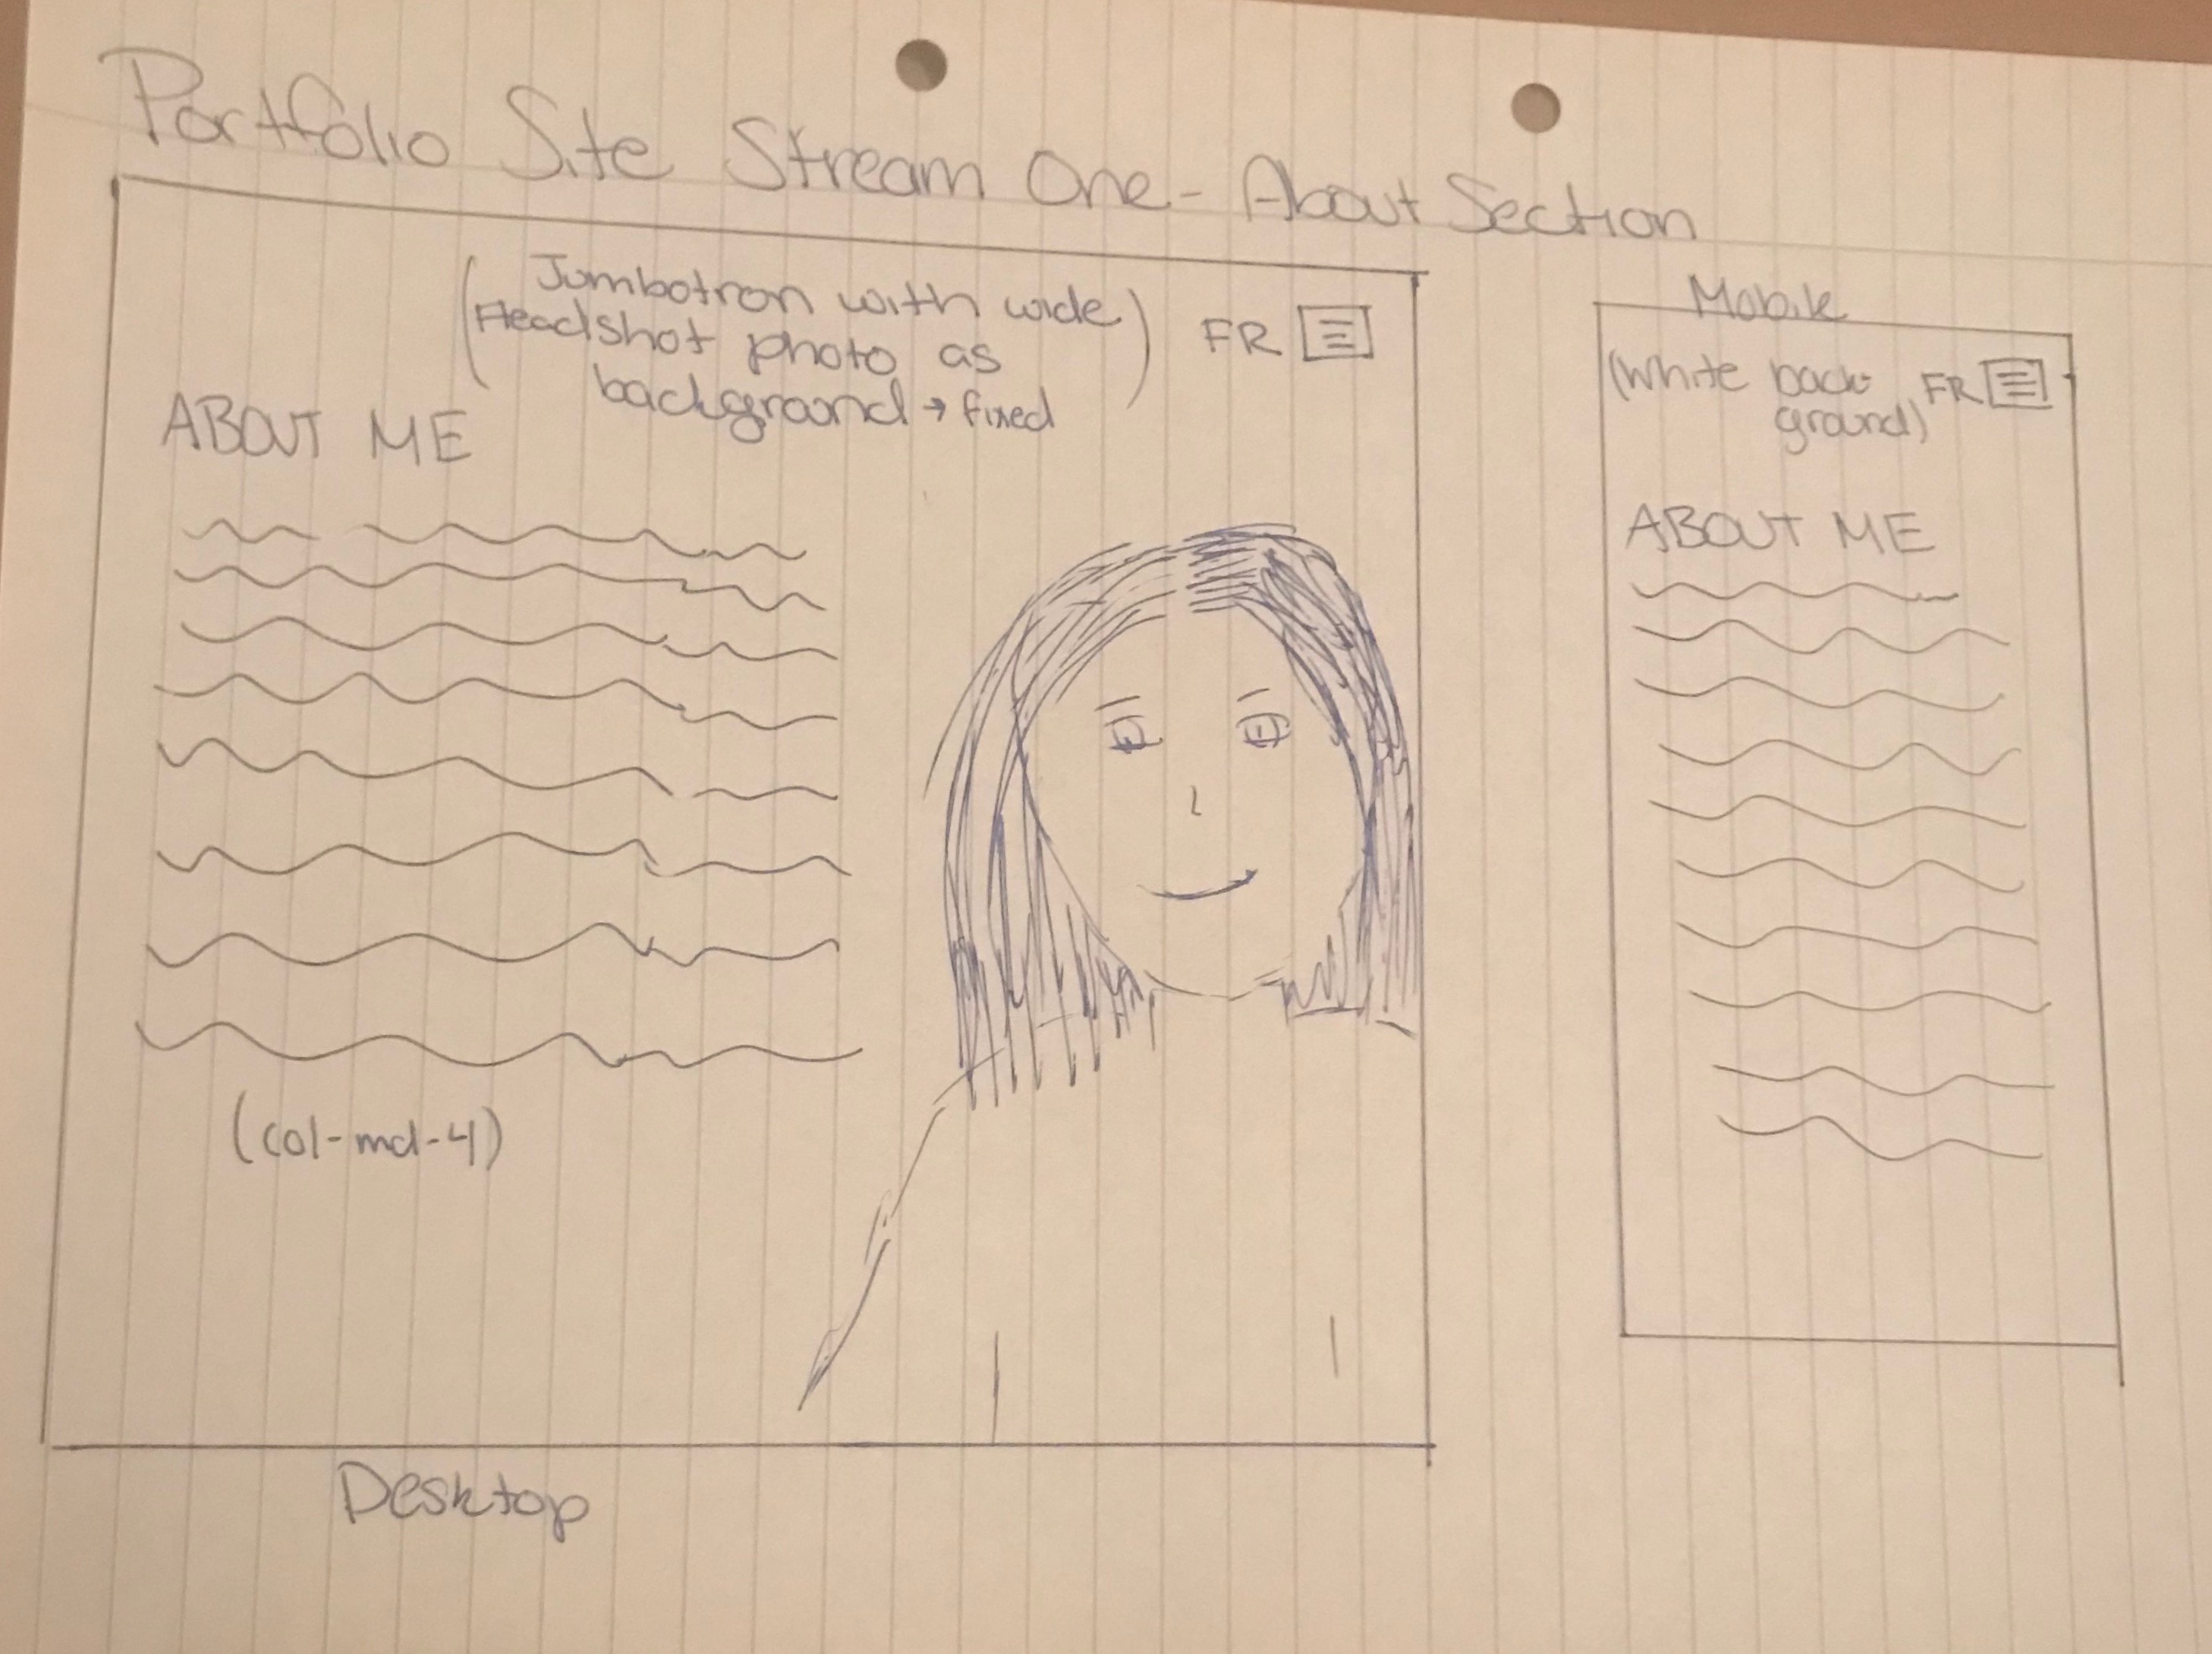 Portfolio Site Stream One - About Section
(Jumbotron with wide
Headshot photo as
background → fixed)
FR
ABOUT ME
(col-md-4)
Desktop
Mobile
(White back-
ground)
FR
ABOUT ME